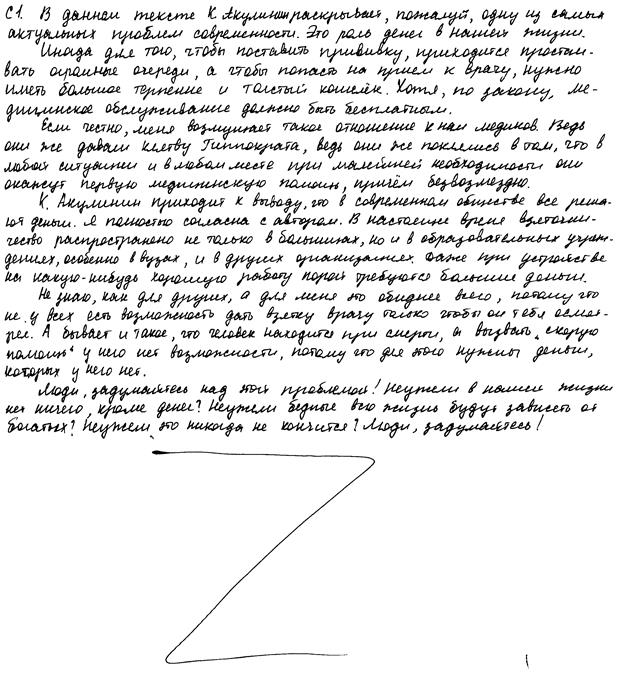 С1. В данном тексте К. Акулинин раскрывает, пожалуй, одну из самых
актуальных проблем современности. Это роль денег в нашей жизни.
Иногда для того, чтобы поставить прививку, приходится простаи-
вать огромные очереди, а чтобы попасть на прием к врачу, нужно
иметь большое терпение и толстый кошелёк. Хотя, по закону, ме-
дицинское обслуживание должно быть бесплатным.
Если честно, меня возмущает такое отношение к нам медиков. Ведь
они же давали клятву Гиппократа, ведь они же поклялись в том, что в
любой ситуации и в любом месте при малейшей необходимости они
окажут первую медицинскую помощь, причём безвозмездно.
К. Акулинин приходит к выводу, что в современном обществе все реша-
ют деньги. Я полностью согласна с автором. В настоящее время взяточни-
чество распространено не только в больницах, но и в образовательных учреж-
дениях, особенно в вузах, и в других организациях. Даже при устройстве
на какую-нибудь хорошую работу порой требуются большие деньги.
Не знаю, как для других, а для меня это обиднее всего, потому что
не у всех есть возможность дать взятку врачу только чтобы он тебя осмот-
рел. А бывает и такое, что человек находится при смерти, а вызвать „скорую
помощь" у него нет возможности, потому что для этого нужны деньги,
которых у него нет.
Люди, задумайтесь над этой проблемой! Неужели в нашей жизни
нет ничего, кроме денег? Неужели бедные всю жизнь будут зависеть от
богатых? Неужели это никогда не кончится? Люди, задумайтесь!